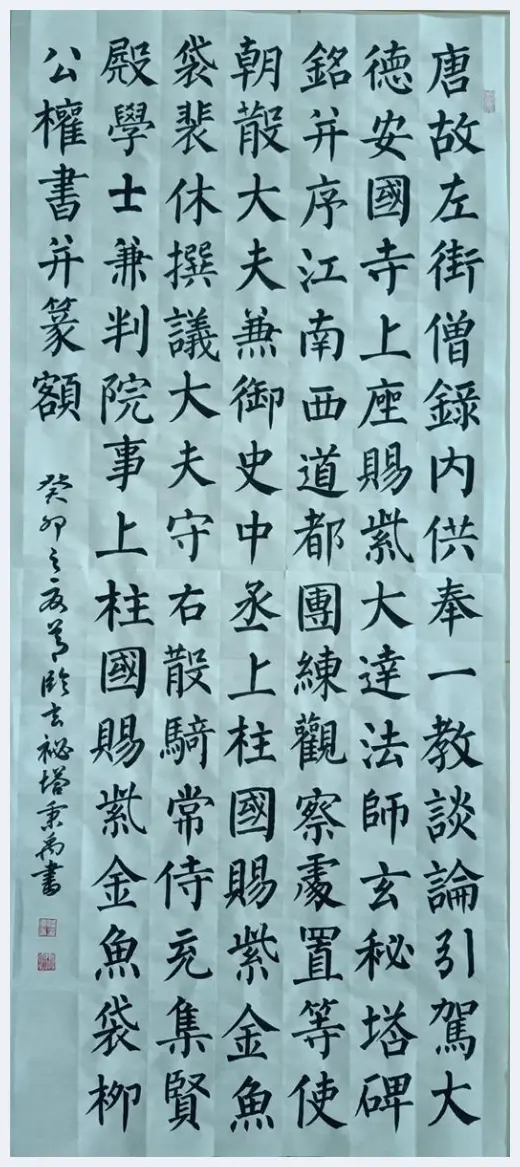 唐故左街僧錄內供奉一教談論引駕大
德安國寺上座賜紫大達法師玄秘塔碑
銘并序江南西道都團練觀察處置等使
朝散大夫兼御史中丞上柱國賜紫金魚
袋裴休撰議大夫守右散騎常侍充集賢
殿學士兼判院事上柱國賜紫金魚袋柳
公權書并篆額
癸卯之夏 臨玄祕塔 書